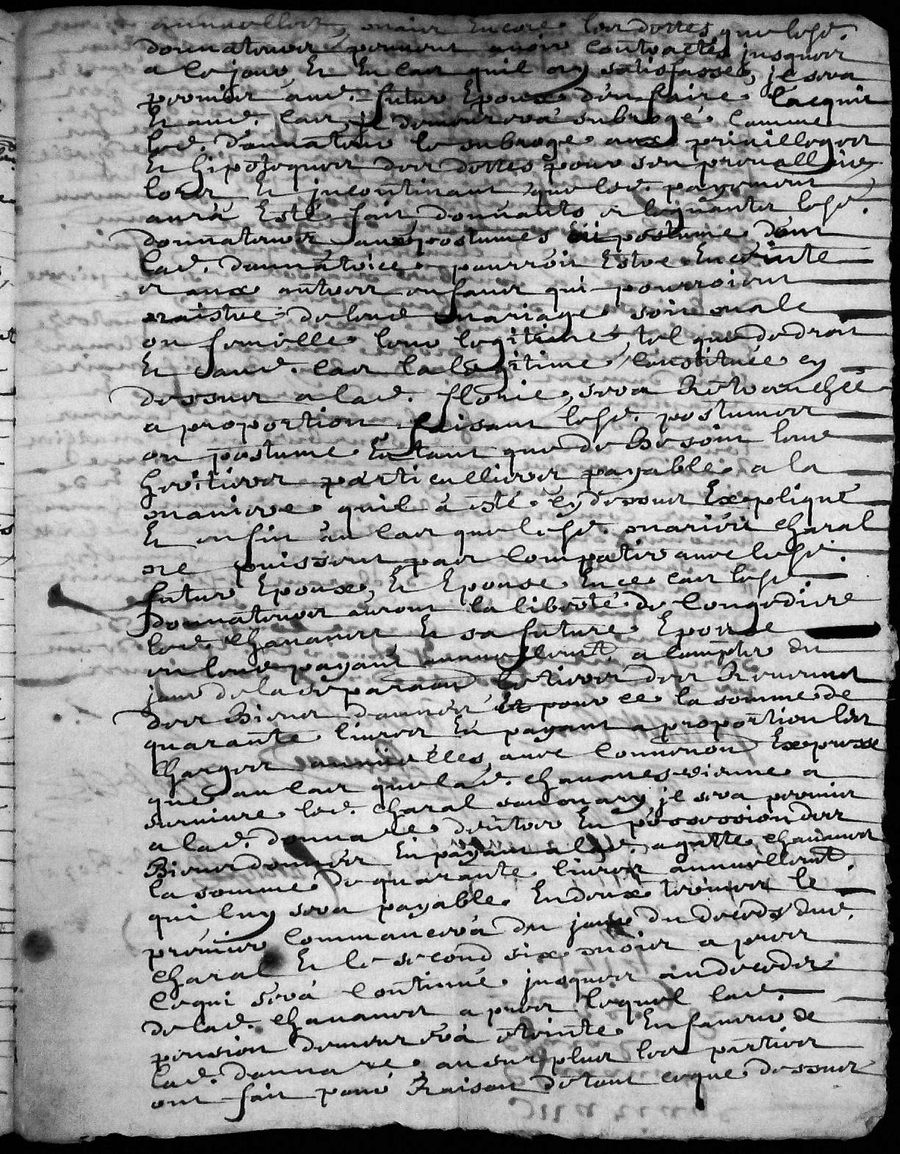 annuellem.t, mais Encore les dettes que lesd.
donnateurs peuvent avoir Contractés jusques
a ce jour Et En Cas quil ny satisfasse, jl sera
permis aud. futur Epoux d'en faire Lacquit
Et aud. Cas jl demeurera subroge Comme
led. donnateur le subroge aux privilleges
Et hipotheques des dettes pour sen prevalloir
lors Et jncontinant que led. payement
aura Esté fait donnants Et leguants lesd.
donnateurs aux postumes ou postume dont
lad. donnatrice pourroit Estre Enceinte
et aux autres enfants qui pourroient
naistre de leur mariage soit male
ou femelle leur legitime tel que de droit
Et aud. Cas la legitime Constituée cy
dessus a lad. florie, sera Retranchée
a proportion faisant lesd. postumes
ou postume En tant que de Besoin leur
heritiers particulliers payable a la
maniere quil a esté cy dessus Expliqué
Et enfin au Cas que lesd. mariés Charal
ne puissent pas Compatir avec lesd.
futur Epoux, Et Epouse En ce Cas lesd.
Donnateurs auront la liberté de Congedier
led. Chananes Et sa future Epouse
en leur payant annuellem.t a Compter du
jour de la separation le tiers des Revenus
des Biens donnés Et pour ce la somme de
quarante livres En payant a proportion les
Charges annuelles, avec Convention Expresse
que au Cas que lad. Chananes vienne a
survivre led. Charal son mary jl sera permis
a lad. donnatrice dentrer En possession des
Biens donnés En payant a lad. agatte Chananes
la somme de quarante livres annuellem.t
qui luy sera payable En deux termes le
premier Commancera du jour du deceds dud.
Charal Et le second six mois apres
Ce qui sera Continué jusques au deceds
de lad. Chananes apres lequel lad.
pension demeurera éteinte En faveur de
lad. donnatrice au surplus les parties
ont fait pour Raison de tout ce que dessus